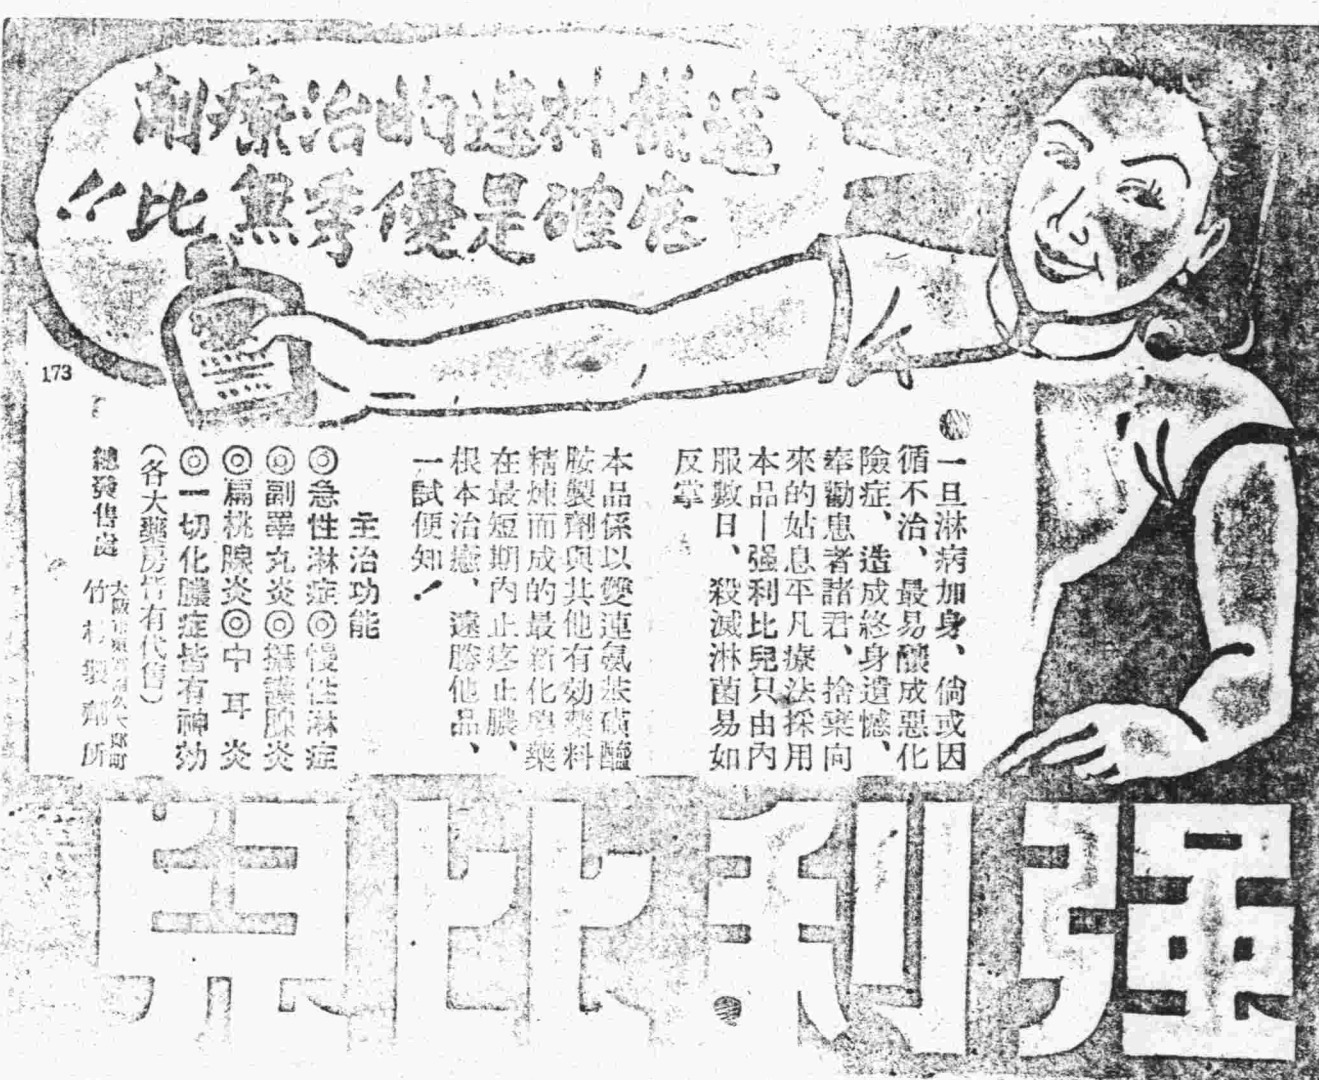 這樣神速的治療劑
確是優秀無比!!
173
●一旦淋病加身、倘或因
循不治、最易釀成惡化
險症、造成終身遺憾、
奉勸患者諸君、捨棄向
來的姑息平凡療法採用
本品—强利比兒只由內
服數日、殺滅淋菌易如
反掌
本品係以雙連氨苯磺醯
胺製劑與其他有効藥料
精煉而成的最新化學藥
在最短期內止疼止膿、
根本治癒、遠勝他品、
一試便知!
主治功能
◎急性淋症◎慢性淋症
◎副睪丸炎◎攝護腺炎
◎扁桃腺炎◎中耳炎
◎一切化膿症皆有神効
(各大藥房皆有代售)
總發售處
大阪
竹村製劑所
强利比兒